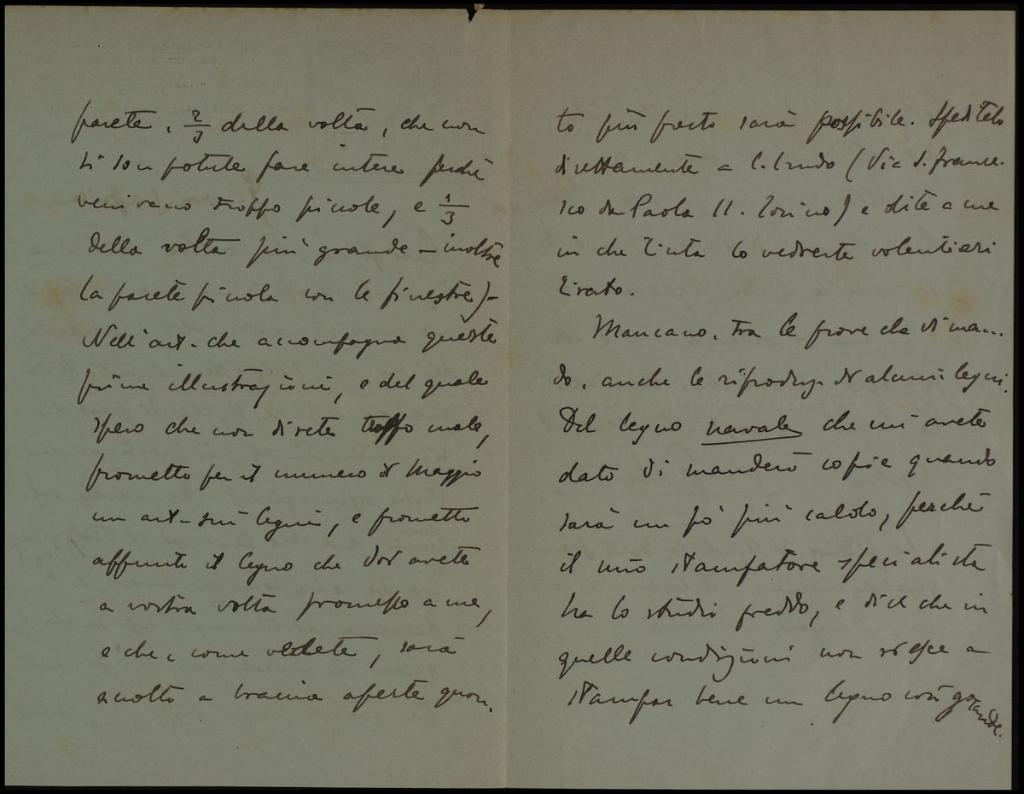 parete, 2/3 della volta, che non
si son potute fare intere perché
venivano troppo piccole, e 1/3
della volta più grande – inoltre
la parete piccola con le finestre) –
Nell'art. che accompagna queste
prime illustrazioni, e del quale
spero che non direte troppo male,
prometto per il numero di Maggio
un art. sui legni, e prometto
appunto il legno che Voi avete
a vostra volta promesso a me,
e che, come vedete, sarà
accolto a braccia aperte quan-
to più presto sarà possibile. Speditelo
direttamente a (Via S. France-
sco da Paola 11. Torino) e dite a me
in che tinta lo vedreste volentieri
tirato.
Mancano, tra le prove che Vi man-
do, anche le riproduz. di alcuni legni.
Del legno navale che mi avete
dato Vi manderò copie quando
sarà un pò più caldo, perché
il mio stampatore specialista
ha lo studio freddo, e dice che in
quelle condizioni non riesce a
stampar bene un legno così grande.